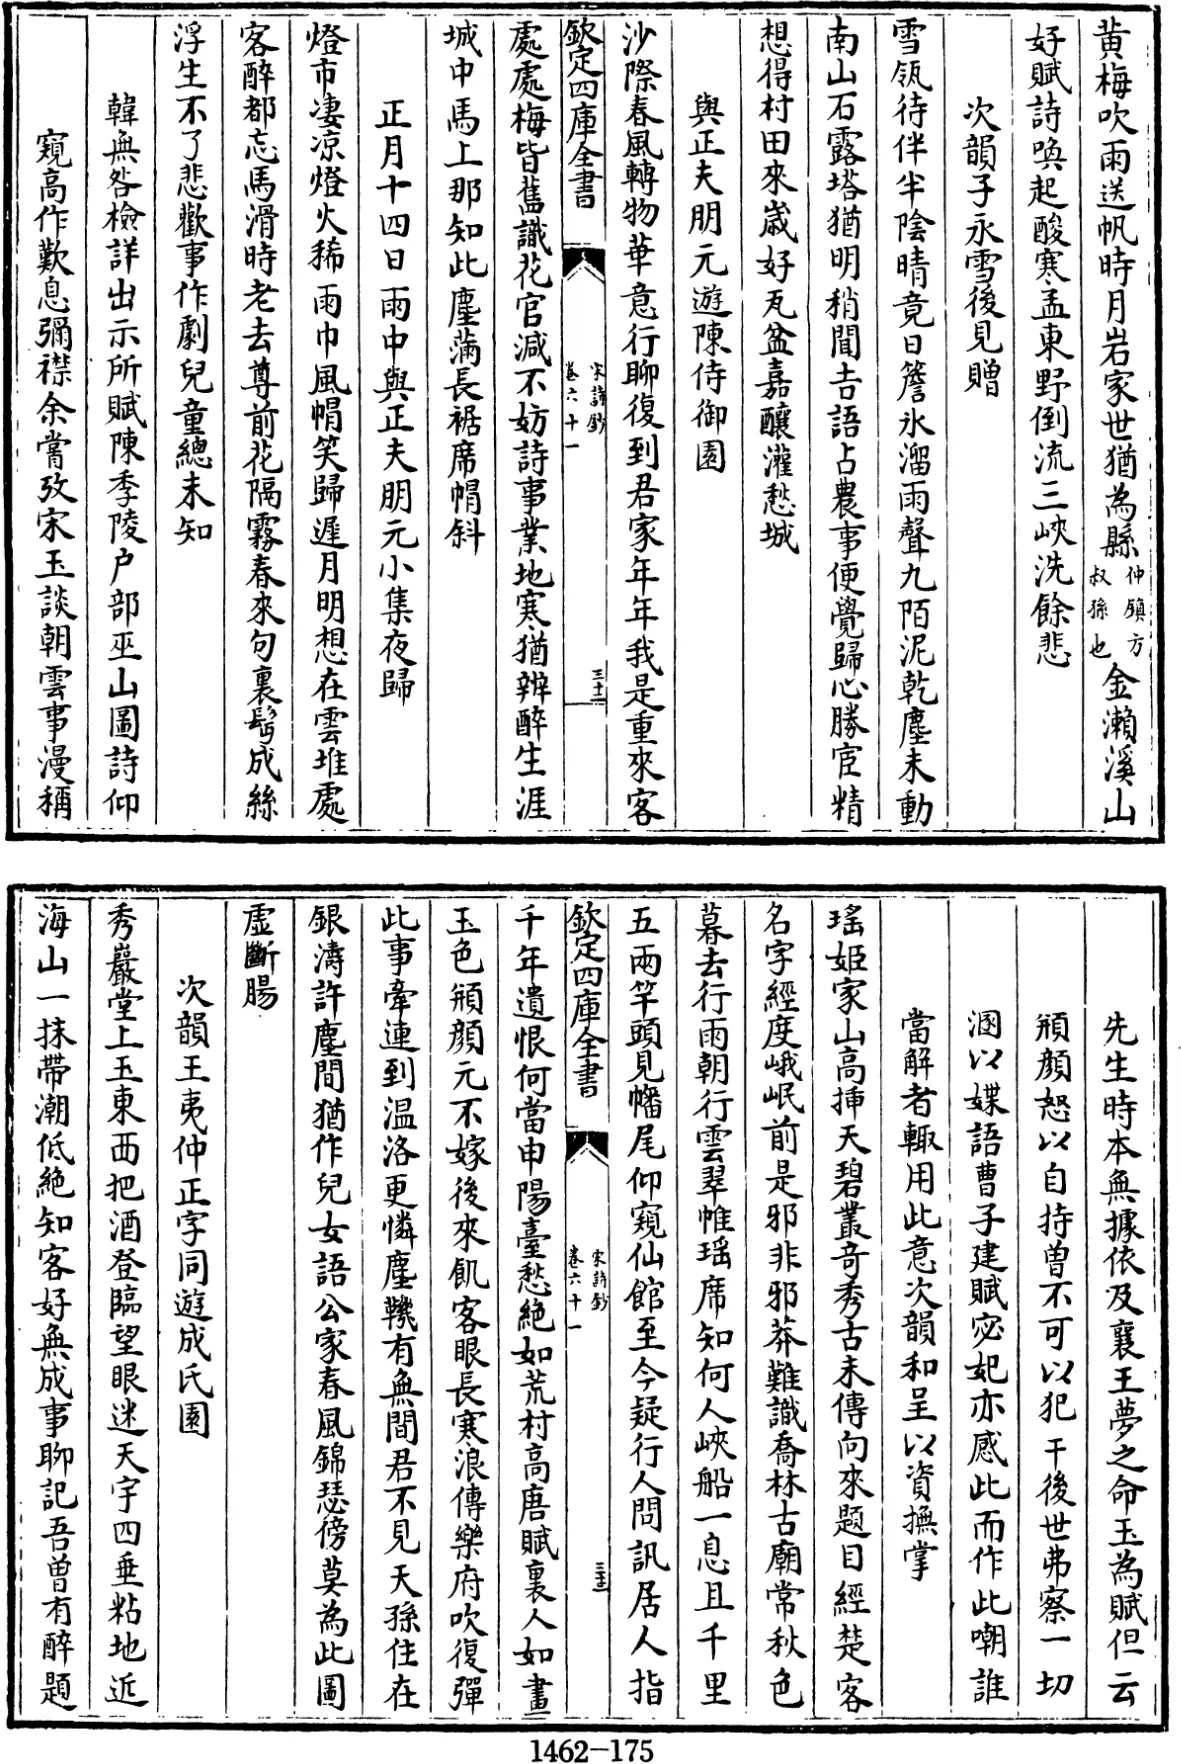 黄梅吹雨送帆時月岩家世猶為縣仲顗方叔孫也金瀨溪山
好賦詩喚起酸寒孟東野倒流三峽洗餘悲
次韻子永雪後見贈
雪瓴待伴半陰晴竟日簷氷溜雨聲九陌泥乾塵未動
南山石露塔猶明稍聞吉語占農事便覺歸心勝宦精
想得村田來嵗好瓦盆嘉釀灌愁城
與正夫朋元遊陳侍御園
沙際春風轉物華意行聊復到君家年年我是重來客
欽定四庫全書
宋詩鈔
卷六十一
三十二
處處梅皆舊識花官減不妨詩事業地寒猶辦醉生涯
城中馬上那知此塵滿長裾席帽斜
正月十四日雨中與正夫朋元小集夜歸
燈市淒凉燈火稀雨巾風帽笑歸遲月明想在雲堆處
客醉都忘馬滑時老去尊前花隔霧春來句裏髩成絲
浮生不了悲歡事作劇兒童總未知
韓無咎檢詳出示所賦陳季陵户部巫山圖詩仰
窺高作歎息彌襟余嘗攷宋玉談朝雲事漫稱
先生時本無據依及襄王夢之命玉為賦但云
頩顔怒以自持曾不可以犯干後世弗察一切
溷以媟語曹子建賦宓妃亦感此而作此嘲誰
當解者輙用此意次韻和呈以資撫掌
瑤姬家山高揷天碧叢奇秀古未傳向來題目經楚客
名字經度峨岷前是邪非邪莽難識喬林古廟常秋色
暮去行雨朝行雲翠帷瑶席知何人峽船一息且千里
五兩竿頭見幡尾仰窺仙館至今疑行人問訊居人指
欽定四庫全書
宋詩鈔
卷六十一
三十三
千年遺恨何當申陽臺愁絶如荒村高唐賦裏人如畫
玉色頩顔元不嫁後來飢客眼長寒浪傳樂府吹復彈
此事牽連到温洛更憐塵韈有無間君不見天孫住在
銀濤許塵間猶作兒女語公家春風錦瑟傍莫為此圖
虚斷腸
次韻王夷仲正字同遊成氏園
秀巖堂上玉東西把酒登臨望眼迷天宇四垂粘地近
海山一抹帶潮低絶知客好無成事聊記吾曾有醉題
1462-175